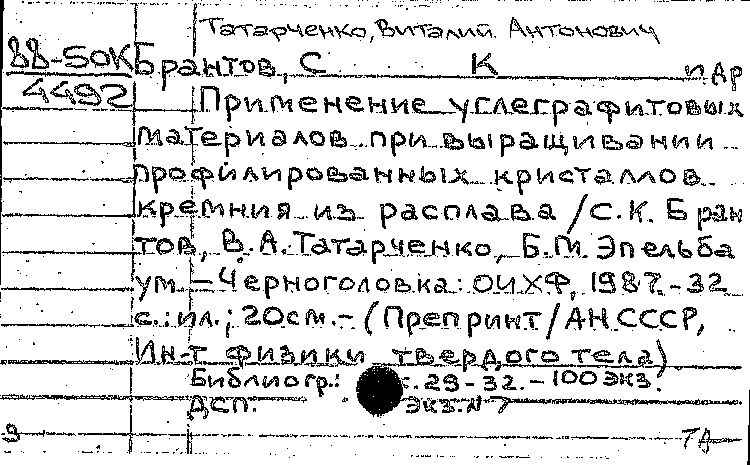 Татарченко, Виталий Антонович
88-50К Брантов, С К и др
4492 Применение углеграфитовых
материалов при выращивании
профилированных кристаллов
кремния из расплава / С.К. Бран
тов, В.А. Татарченко, Б.М. Эпельба
ум. – Черноголовка: ОИХФ, 1987. - 32
с.: ил.; 20см. – (Препринт / АН СССР,
Ин-т физики твердого тела)
Библиогр.: с. 29-32. – 100 экз.
ДСП. Экз. N 7
9